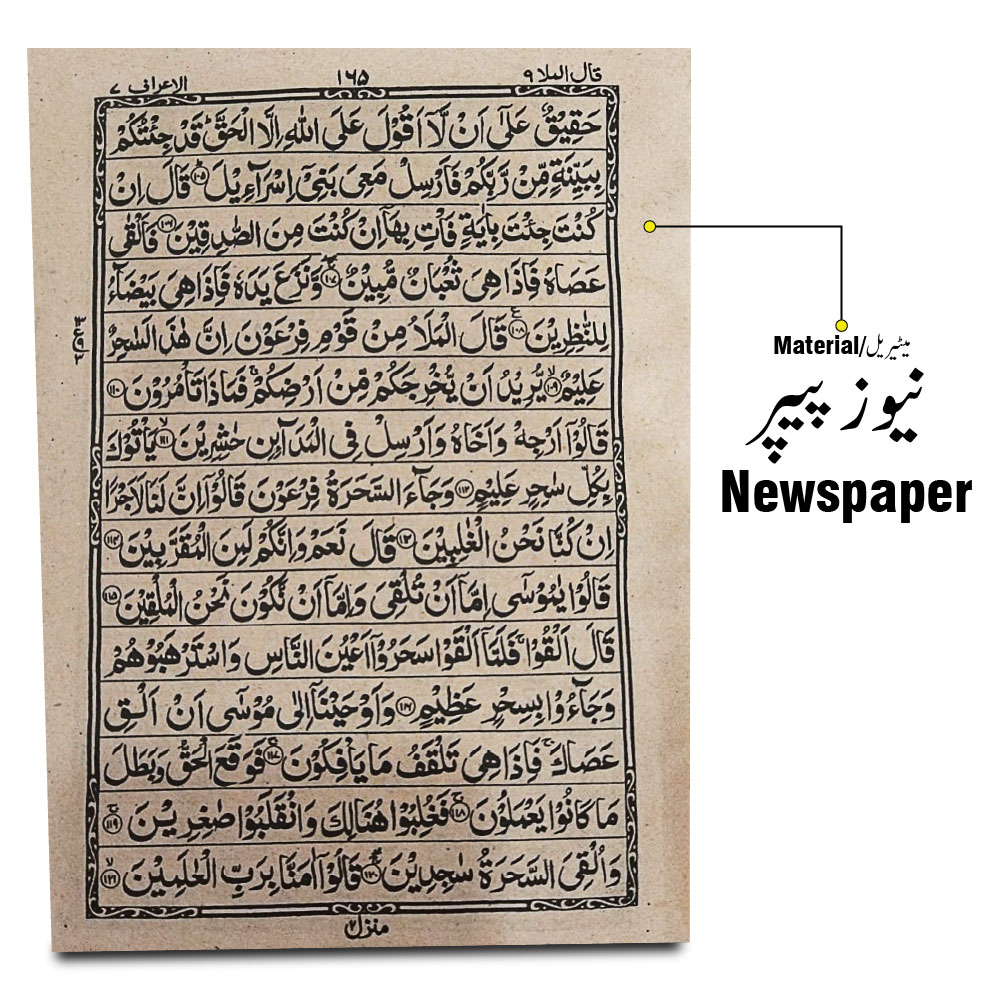 قال الملا ۹
۱۶۵
الاعراف ۷
حَقِيْقٌ عَلٰۤى اَنْ لَّاۤ اَقُوْلَ عَلَى اللّٰهِ اِلَّا الْحَقَّ ؕ قَدْ جِئْتُكُمْ
بِبَيِّنَةٍ مِّنْ رَّبِّكُمْ فَاَرْسِلْ مَعِیَ بَنِیْۤ اِسْرَآءِيْلَ ؕ ۱۰۵ قَالَ اِنْ
كُنْتَ جِئْتَ بِاٰيَةٍ فَاْتِ بِهَاۤ اِنْ كُنْتَ مِنَ الصّٰدِقِيْنَ ۱۰۶ فَاَلْقٰى
عَصَاهُ فَاِذَا هِیَ ثُعْبَانٌ مُّبِيْنٌ ۱۰۷ وَّنَزَعَ يَدَهٗ فَاِذَا هِیَ بَيْضَآءُ
لِلنّٰظِرِيْنَ ۱۰۸ قَالَ الْمَلَاُ مِنْ قَوْمِ فِرْعَوْنَ اِنَّ هٰذَا لَسٰحِرٌ
عَلِيْمٌ ۱۰۹ يُّرِيْدُ اَنْ يُّخْرِجَكُمْ مِّنْ اَرْضِكُمْ ۚ فَمَاذَا تَاْمُرُوْنَ ۱۱۰
قَالُوْۤا اَرْجِهْ وَاَخَاهُ وَاَرْسِلْ فِی الْمَدَآئِنِ حٰشِرِيْنَ ۱۱۱ يَاْتُوْكَ
بِكُلِّ سٰحِرٍ عَلِيْمٍ ۱۱۲ وَجَآءَ السَّحَرَةُ فِرْعَوْنَ قَالُوْۤا اِنَّ لَنَا لَاَجْرًا
اِنْ كُنَّا نَحْنُ الْغٰلِبِيْنَ ۱۱۳ قَالَ نَعَمْ وَاِنَّكُمْ لَمِنَ الْمُقَرَّبِيْنَ ۱۱۴
قَالُوْا يٰمُوْسٰۤى اِمَّاۤ اَنْ تُلْقِیَ وَاِمَّاۤ اَنْ نَّكُوْنَ نَحْنُ الْمُلْقِيْنَ ۱۱۵
قَالَ اَلْقُوْا ۚ فَلَمَّاۤ اَلْقَوْا سَحَرُوْۤا اَعْيُنَ النَّاسِ وَاسْتَرْهَبُوْهُمْ
وَجَآءُوْ بِسِحْرٍ عَظِيْمٍ ۱۱۶ وَاَوْحَيْنَاۤ اِلٰى مُوْسٰۤى اَنْ اَلْقِ
عَصَاكَ ۚ فَاِذَا هِیَ تَلْقَفُ مَا يَاْفِكُوْنَ ۱۱۷ فَوَقَعَ الْحَقُّ وَبَطَلَ
مَا كَانُوْا يَعْمَلُوْنَ ۱۱۸ فَغُلِبُوْا هُنَالِكَ وَانْقَلَبُوْا صٰغِرِيْنَ ۱۱۹
وَاُلْقِیَ السَّحَرَةُ سٰجِدِيْنَ ۱۲۰ قَالُوْۤا اٰمَنَّا بِرَبِّ الْعٰلَمِيْنَ ۱۲۱
منزل ۲
Material/میٹیریل
نیوز پیپر
Newspaper